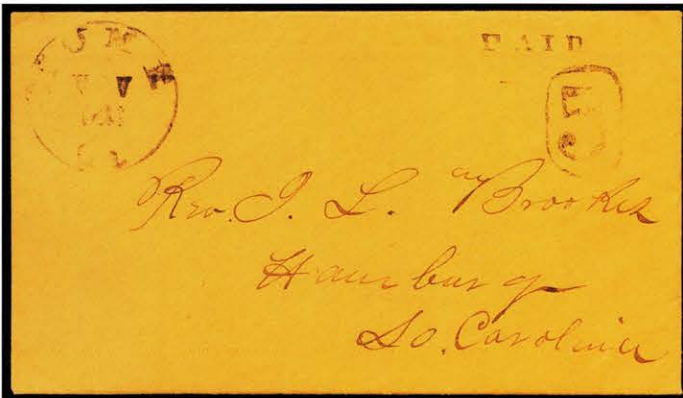 PAID
Rev. I. L. Brookes
Hamburg
So. Carolina